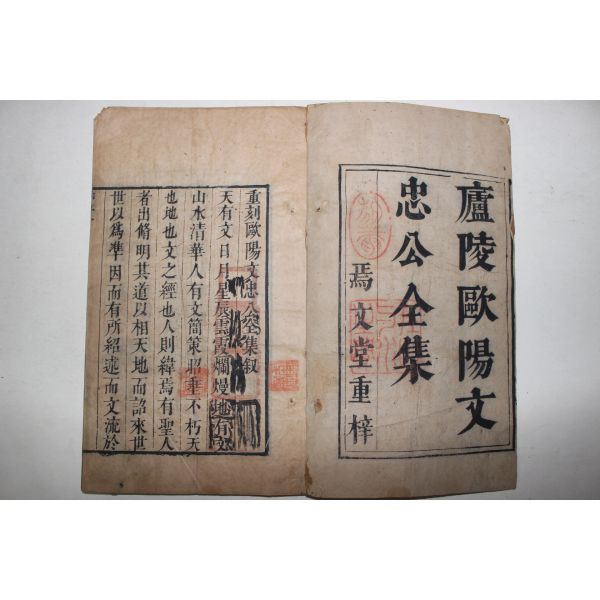 廬陵歐陽文
忠公全集
焉文堂重梓
重刻歐陽文忠公全集叙
天有文日月星辰雲霞爛熳地有文
山水清華人有文簡策昭垂不朽天
也地也文之經也人則緯焉有聖人
者出脩明其道以相天地而詔來世
世以爲準因而有所紹述而文流於